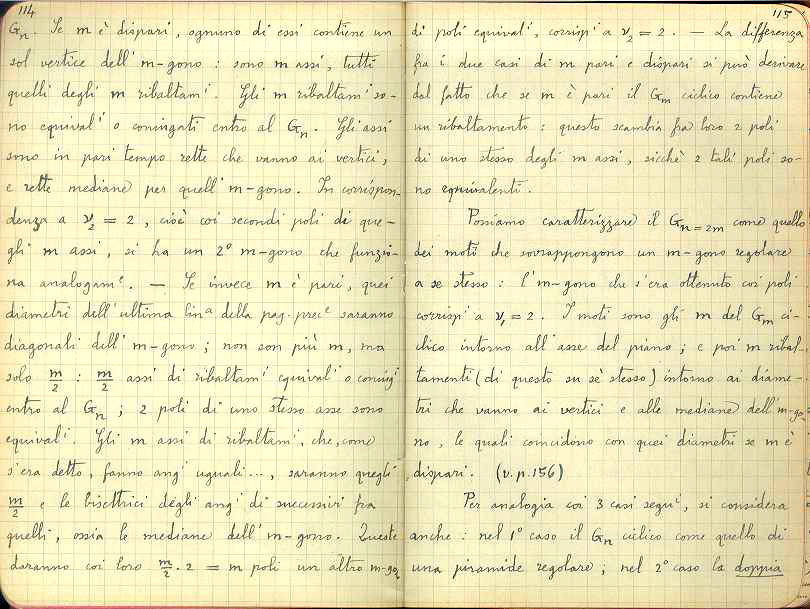 114
G_n. Se m è dispari, ognuno di essi contiene un
sol vertice dell' m-gono : sono m assi, tutti
quelli degli m ribaltam^i. Gli m ribaltam^i so-
no equival^i o coniugati entro al G_n. Gli assi
sono in pari tempo rette che vanno ai vertici,
e rette mediane per quell' m-gono. In corrispon-
denza a ν_2 = 2, cioè coi secondi poli di que-
gli m assi, si ha un 2° m-gono che funzio-
na analogam^e. — Se invece m è pari, quei
diametri dell'ultima lin^a della pag. prec^e saranno
diagonali dell' m-gono ; non son più m, ma
solo m/2 : m/2 assi di ribaltam^i equival^i o coniug^i
entro al G_n ; 2 poli di uno stesso asse sono
equival^i. Gli m assi di ribaltam^i, che, come
s'era detto, fanno ang^i uguali..., saranno quegli
m/2 e le bisettrici degli ang^i di successivi fra
quelli, ossia le mediane dell' m-gono. Queste
daranno coi loro m/2 . 2 = m poli un altro m-go_no
115
di poli equival^i, corrisp^i a ν_2 = 2. — La differenza
fra i due casi di m pari e dispari si può derivare
dal fatto che se m è pari il G_m ciclico contiene
un ribaltamento : questo scambia fra loro 2 poli
di uno stesso degli m assi, sicchè 2 tali poli so-
no equivalenti.
Possiamo caratterizzare il G_n=2m come quello
dei moti che sovrappongono un m-gono regolare
a se stesso : l'm-gono che s'era ottenuto coi poli
corrisp^i a ν_1 = 2. I moti sono gli m del G_m ci-
clico intorno all'asse del piano ; e poi m ribal-
tamenti (di questo su sè stesso) intorno ai diame-
tri che vanno ai vertici e alle mediane dell' m-go-
no, le quali coincidono con quei diametri se m è
dispari. (v. p. 156)
Per analogia coi 3 casi segu^i, si considera
anche : nel 1° caso il G_n ciclico come quello di
una piramide regolare ; nel 2° caso la doppia